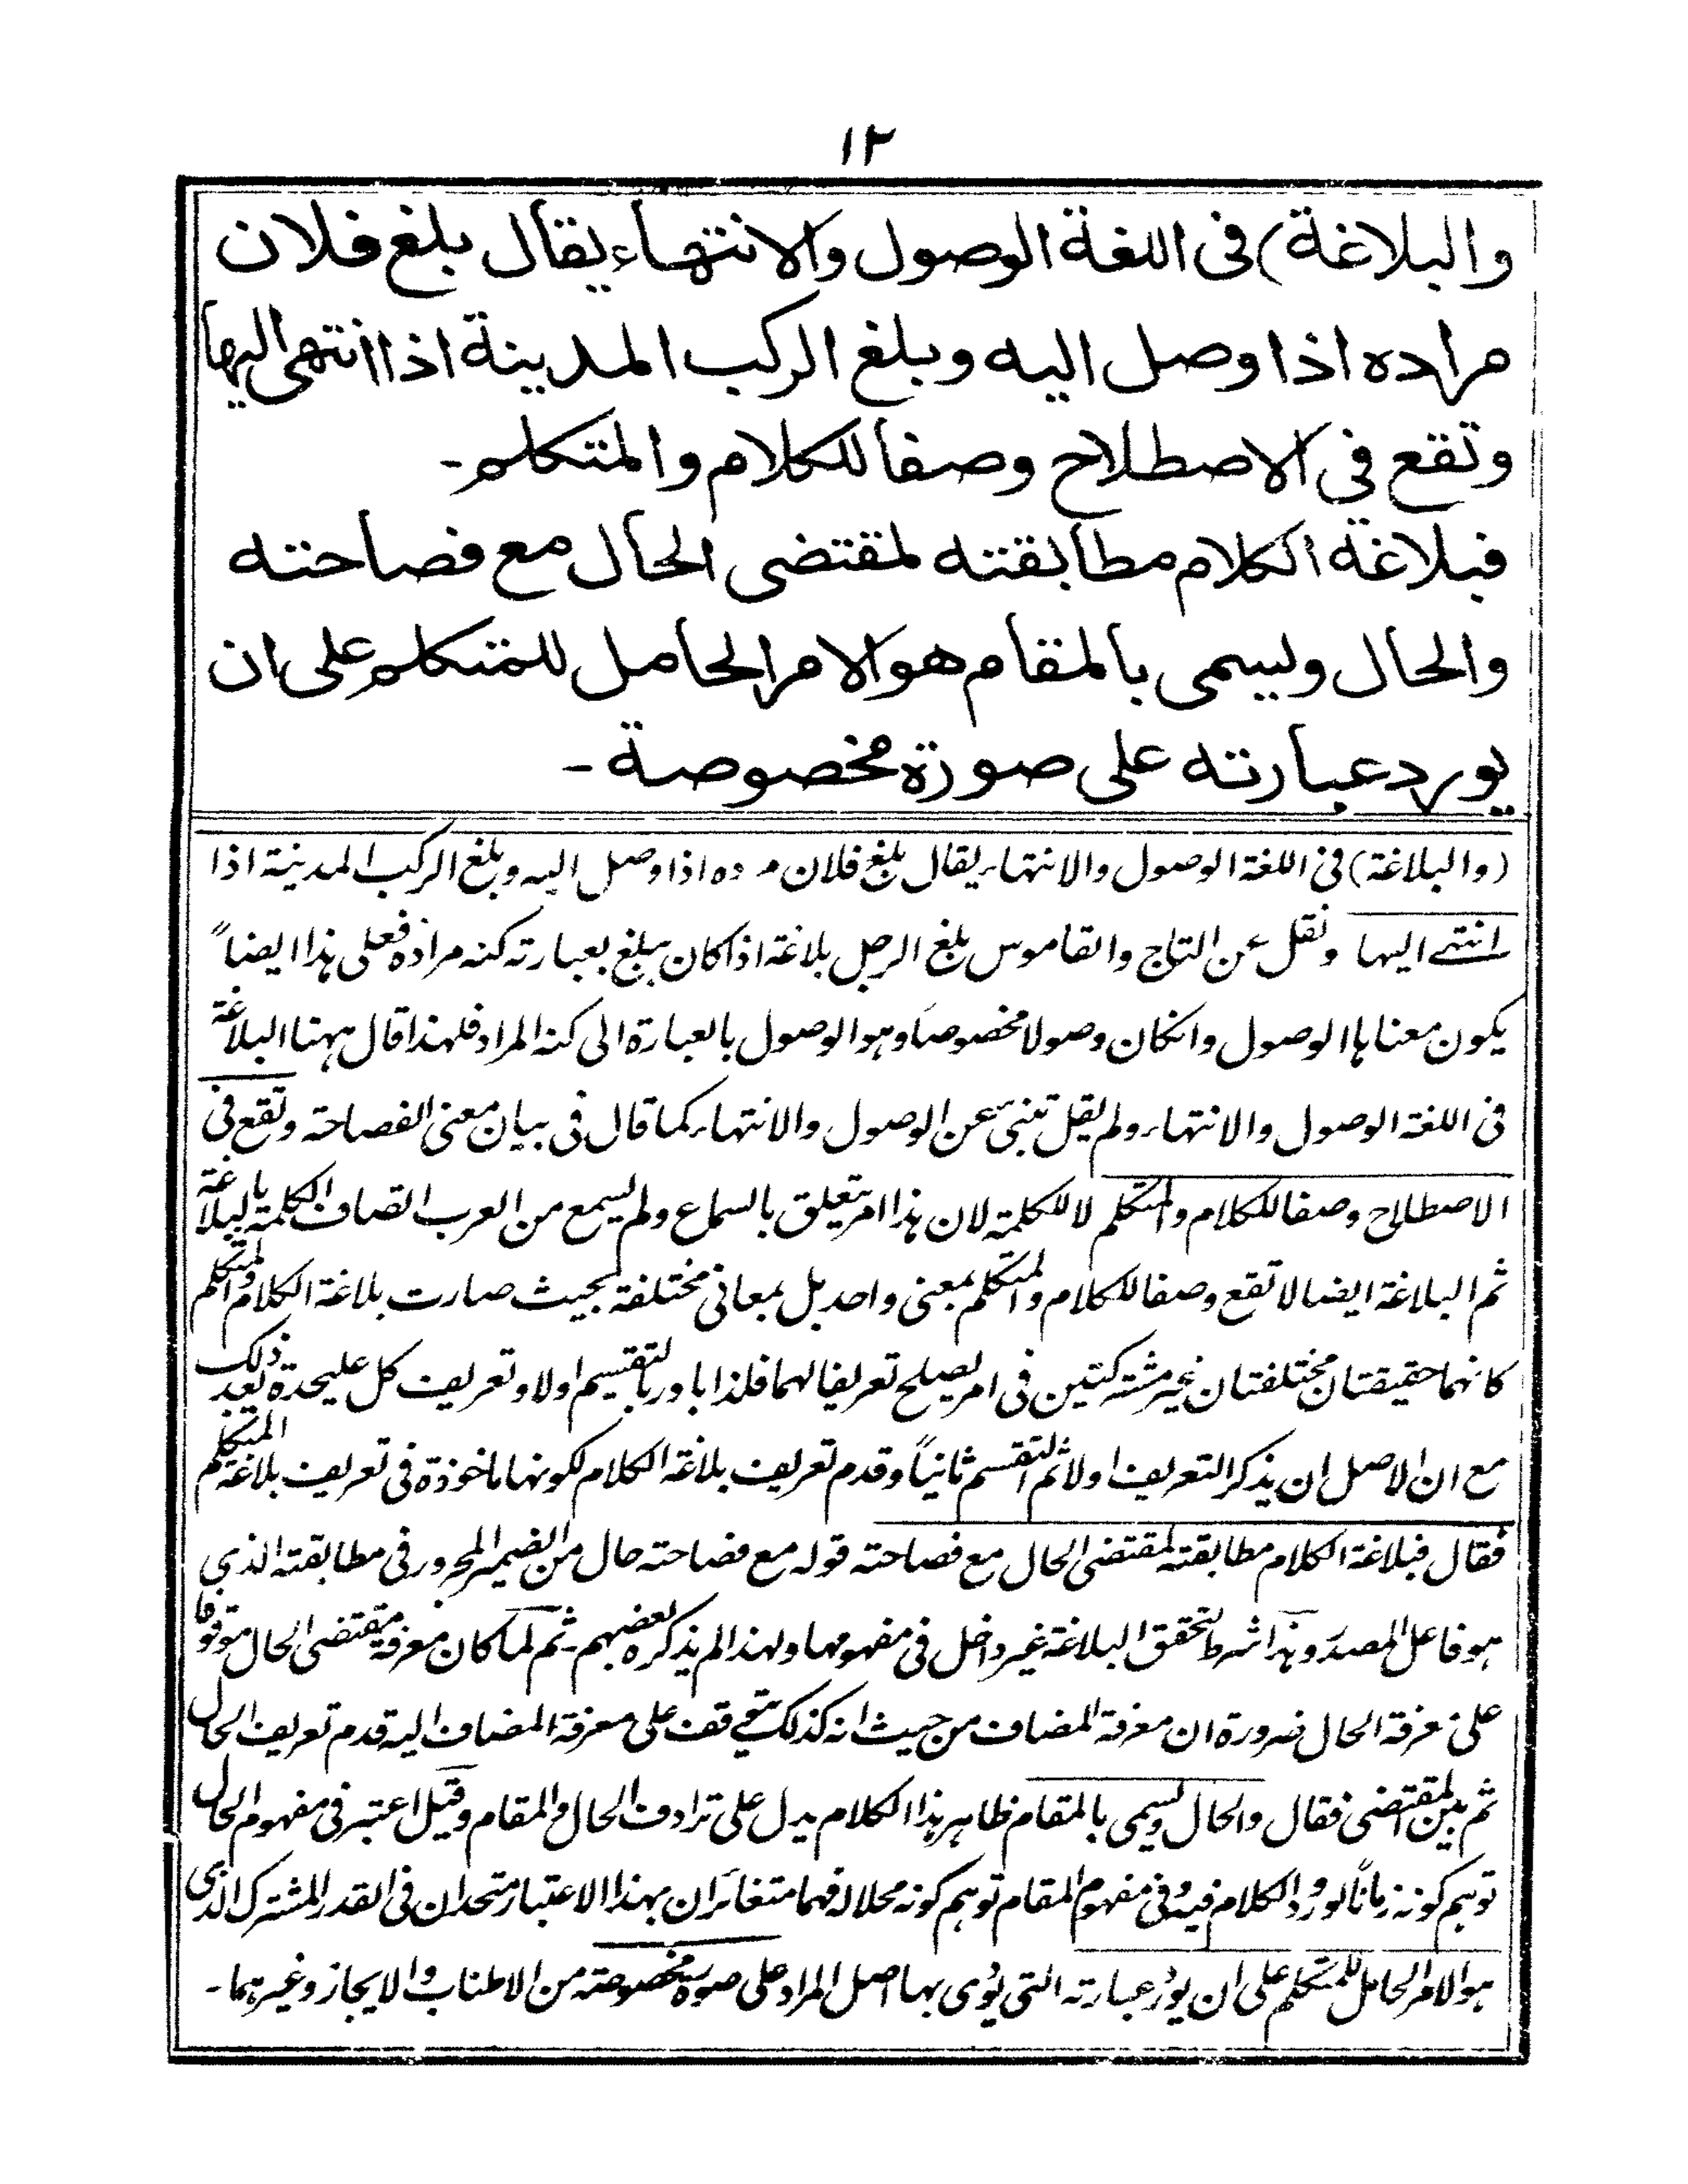 ١٢
والبلاغة) فى اللغة الوصول والانتهاء يقال بلغ فلان
مراده اذا وصل اليه وبلغ الركب المدينة اذا انتهى اليها
وتقع فى الاصطلاح وصفا للكلام والمتكلم-
فبلاغة الكلام مطابقته لمقتضى الحال مع فصاحته
والحال ويسمى بالمقام هو الامر الحامل للمتكلم على ان
يورد عبارته على صورة مخصوصة-
(والبلاغة) فى اللغة الوصول والانتهاء يقال بلغ فلان م ده اذا وصل اليه وبلغ الركب المدينة اذا
انتهى اليها ونقل عن التاج والقاموس بلغ الرجل بلاغة اذا كان يبلغ بعبارته كنه مراده فعلى هذا ايضاً
يكون معناها الوصول وانكان وصولا مخصوصا وهو الوصول بالعبارة الى كنه المراد فلهذا قال ههنا البلاغة
فى اللغة الوصول والانتهاء ولم يقل تنبئ عن الوصول والانتهاء كما قال فى بيان معنى الفصاحة وتقع فى
الاصطلاح وصفا للكلام والمتكلم لا للكلمة لان هذا امر يتعلق بالسماع ولم يسمع من العرب اتصاف الكلمة بالبلاغة
ثم البلاغة ايضا لا تقع وصفا للكلام والمتكلم بمعنى واحد بل بمعانى مختلفة بحيث صارت بلاغة الكلام والمتكلم
كانهما حقيقتان مختلفتان غير مشتركتين فى امر يصلح تعريفا لهما فلذا بادر بالتقسيم اولا وتعريف كل عليحدة بعد ذلك
مع ان الاصل ان يذكر التعريف اولا ثم التقسيم ثانياً وقدم تعريف بلاغة الكلام لكونها ماخوذة فى تعريف بلاغة المتكلم
فقال فبلاغة الكلام مطابقته لمقتضى الحال مع فصاحته قوله مع فصاحته حال من الضمير المجرور فى مطابقته الذى
هو فاعل المصدر وهذا شرط لتحقق البلاغة غير داخل فى مفهومها ولهذا لم يذكره بعضهم- ثم لما كان معرفة مقتضى الحال موقوفا
على معرفة الحال ضرورة ان معرفة المضاف من حيث انه كذلك يتوقف على معرفة المضاف اليه قدم تعريف الحال
ثم بين المقتضى فقال والحال ويسمى بالمقام ظاهر هذا الكلام يدل على ترادف الحال والمقام وقيل اعتبر فى مفهوم الحال
توهم كونه زماناً لورود الكلام فيه وفى مفهوم المقام توهم كونه محلا له فهما متغائران بهذا الاعتبار متحدان فى القدر المشترك الذى
هو الامر الحامل للمتكلم على ان يورد عبارته التى يؤدى بها اصل المراد على صورة مخصوصة من الاطناب والايجاز وغيرهما-